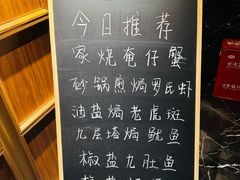 今日推荐
家烧奄仔蟹
砂锅煎焗罗氏虾
油盐焗老虎斑
九层塔焗鱿鱼
椒盐九肚鱼